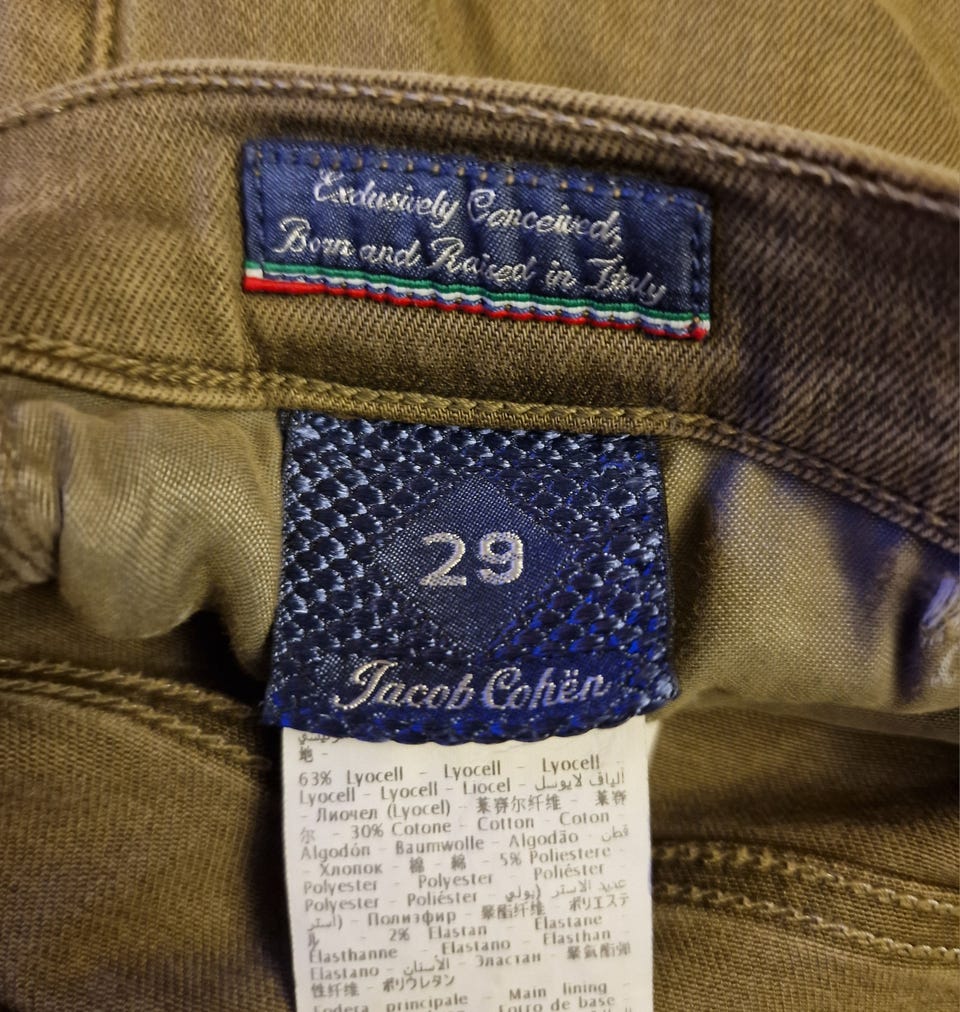 Exclusively Conceived,
Born and Raised in Italy
29
Jacob Cohën
地 -
63% Lyocell - Lyocell - Lyocell -
Lyocell - Lyocell - Liocel - ألياف لايوسل
- Лиочел (Lyocel) - 莱赛尔纤维 - 莱赛
尔 - 30% Cotone - Cotton - Coton -
Algodón - Baumwolle - Algodão - قطن
- Хлопок - 棉 - 綿 - 5% Poliestere -
Polyester - Polyester - Poliéster -
Polyester - Poliéster - عديد الاستر (بولي
أستر) - Полиэфир - 聚酯纤维 - ポリエステ
ル - 2% Elastan - Elastane -
Elasthanne - Elastano - Elasthan -
Elastano - الأستان - Эластан - 聚氨酯弹
性纤维 - ポリウレタン
Fodera principale - Main lining -
Forro de base -